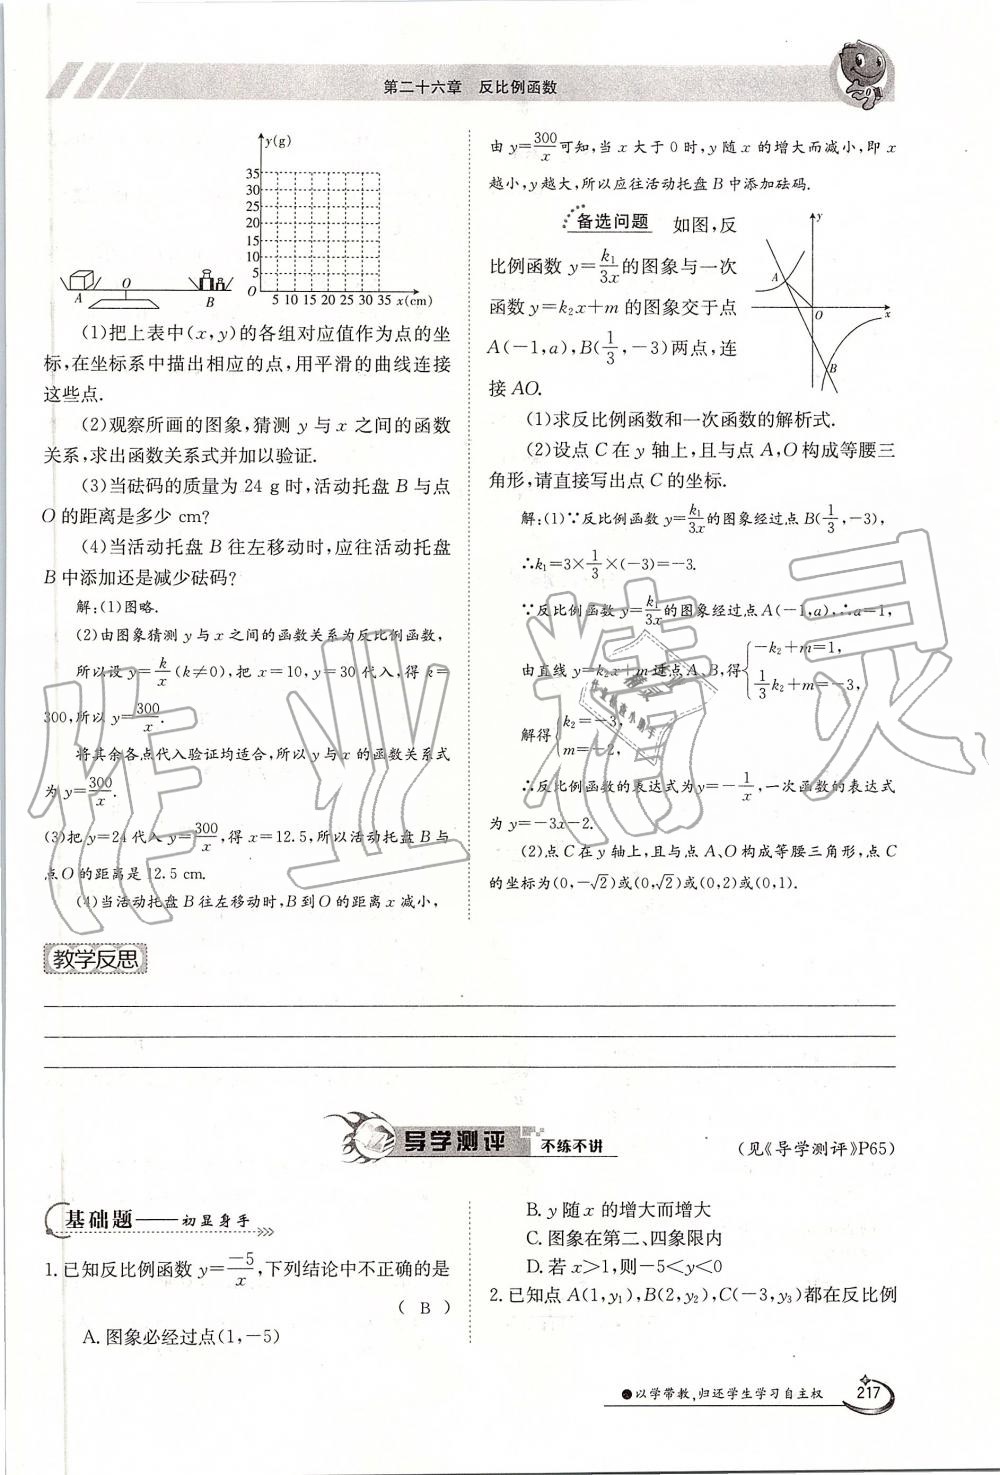 第二十六章 反比例函数
y(g)
35
30
25
20
15
10
5
O
5 10 15 20 25 30 35 x(cm)
A O B
(1)把上表中(x,y)的各组对应值作为点的坐
标,在坐标系中描出相应的点,用平滑的曲线连接
这些点.
(2)观察所画的图象,猜测 y 与 x 之间的函数
关系,求出函数关系式并加以验证.
(3)当砝码的质量为 24 g 时,活动托盘 B 与点
O 的距离是多少 cm?
(4)当活动托盘 B 往左移动时,应往活动托盘
B 中添加还是减少砝码?
解:(1)图略.
(2)由图象猜测 y 与 x 之间的函数关系为反比例函数,
所以设 y=k/x(k≠0),把 x=10,y=30 代入,得 k=
300,所以 y=300/x.
将其余各点代入验证均适合,所以 y 与 x 的函数关系式
为 y=300/x.
(3)把 y=24 代入 y=300/x,得 x=12.5,所以活动托盘 B 与
点O 的距离是 12.5 cm.
(4)当活动托盘 B 往左移动时,B到O 的距离 x 减小,
由 y=300/x可知,当 x 大于 0 时,y 随 x 的增大而减小,即 x
越小,y 越大,所以应往活动托盘 B 中添加砝码.
备选问题 如图,反
比例函数 y=k₁/3x的图象与一次
函数 y=k₂x+m 的图象交于点
A(-1,a),B(1/3,-3)两点,连
接 AO.
y
A
O
x
B
(1)求反比例函数和一次函数的解析式.
(2)设点 C 在 y 轴上,且与点 A,O 构成等腰三
角形,请直接写出点 C 的坐标.
解:(1)∵反比例函数 y=k₁/3x的图象经过点 B(1/3,-3),
∴k₁=3×1/3×(-3)=-3.
∵反比例函数 y=k₁/3x的图象经过点 A(-1,a),∴a=1,
由直线 y=k₂x+m 过点 A、B,得{-k₂+m=1,
1/3k₂+m=-3,
解得{k₂=-3,
m=-2,
∴反比例函数的表达式为y=-1/x,一次函数的表达式
为 y=-3x-2.
(2)点 C 在 y 轴上,且与点 A、O 构成等腰三角形,点 C
的坐标为(0,-√2)或(0,√2)或(0,2)或(0,1).
作业精灵
教学反思
导学测评 不练不讲
(见《导学测评》P65)
基础题——初显身手
1.已知反比例函数 y=-5/x,下列结论中不正确的是
( B )
A.图象必经过点(1,-5)
B. y 随 x 的增大而增大
C. 图象在第二、四象限内
D. 若 x>1,则-5<y<0
2.已知点 A(1,y₁),B(2,y₂),C(-3,y₃)都在反比例
●以学带教,归还学生学习自主权
217